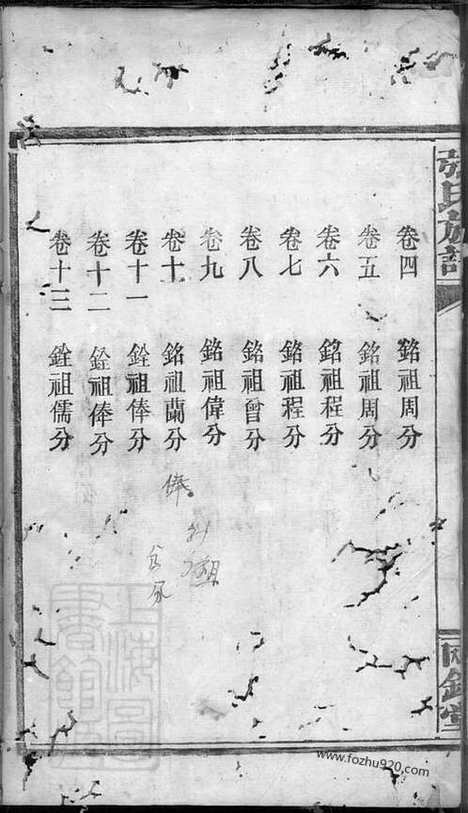 張氏族譜
卷四 銘祖周分
卷五 銘祖周分
卷六 銘祖程分
卷七 銘祖程分
卷八 銘祖曾分
卷九 銘祖偉分
卷十 銘祖蘭分
卷十一 銓祖俸分
卷十二 銓祖俸分
卷十三 銓祖儒分
俸
上海圖書館
www.fozhu920.com